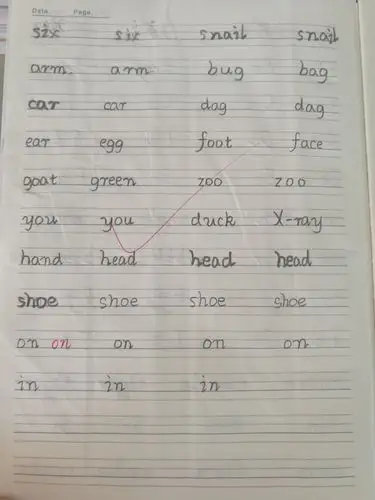 Date Page
six six snail snail
arm. arm bug bag
car car dag dag
ear egg foot face
goat green zoo zoo
you you duck X-ray
hand head head head
shoe shoe shoe shoe
on on on on on
in in in